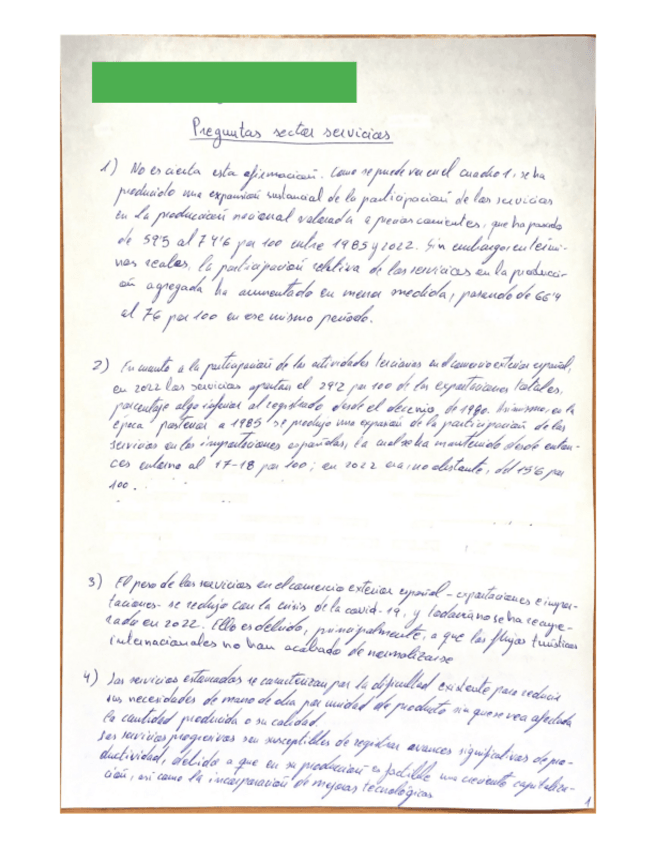 Preguntas sector servicios
1) No es cierta esta afirmación. Como se puede ver en el cuadro 1, se ha
producido una expansión sustancial de la participación de los servicios
en la producción nacional valorada a precios corrientes, que ha pasado
de 59'5 al 74'6 por 100 entre 1985 y 2022. Sin embargo, en térmi-
nos reales, la participación relativa de los servicios en la producci-
ón agregada ha aumentado en menor medida, pasando de 66'9
al 76 por 100 en ese mismo período.
2) En cuanto a la participación de las actividades terciarias en el comercio exterior español,
en 2022 los servicios aportan el 29'2 por 100 de las exportaciones totales,
porcentaje algo inferior al registrado desde el decenio de 1990. Asimismo, en la
época posterior a 1985 se produjo una expansión de la participación de los
servicios en las importaciones españolas, la cual se ha mantenido desde enton-
ces entorno al 17-18 por 100; en 2022 era, no obstante, del 15'6 por
100.
3) El peso de los servicios en el comercio exterior español - exportaciones e impor-
taciones - se redujo con la crisis de la covid-19, y todavía no se ha recupe-
rado en 2022. Ello es debido, principalmente, a que los flujos turísticos
internacionales no han acabado de normalizarse
4) Los servicios estancados se caracterizan por la dificultad existente para reducir
sus necesidades de mano de obra por unidad de producto sin que se vea afectada
la cantidad producida o su calidad.
Los servicios progresivos son susceptibles de registrar avances significativos de pro-
ductividad, debido a que en su producción es factible una creciente capitaliza-
ción, así como la incorporación de mejoras tecnológicas
1